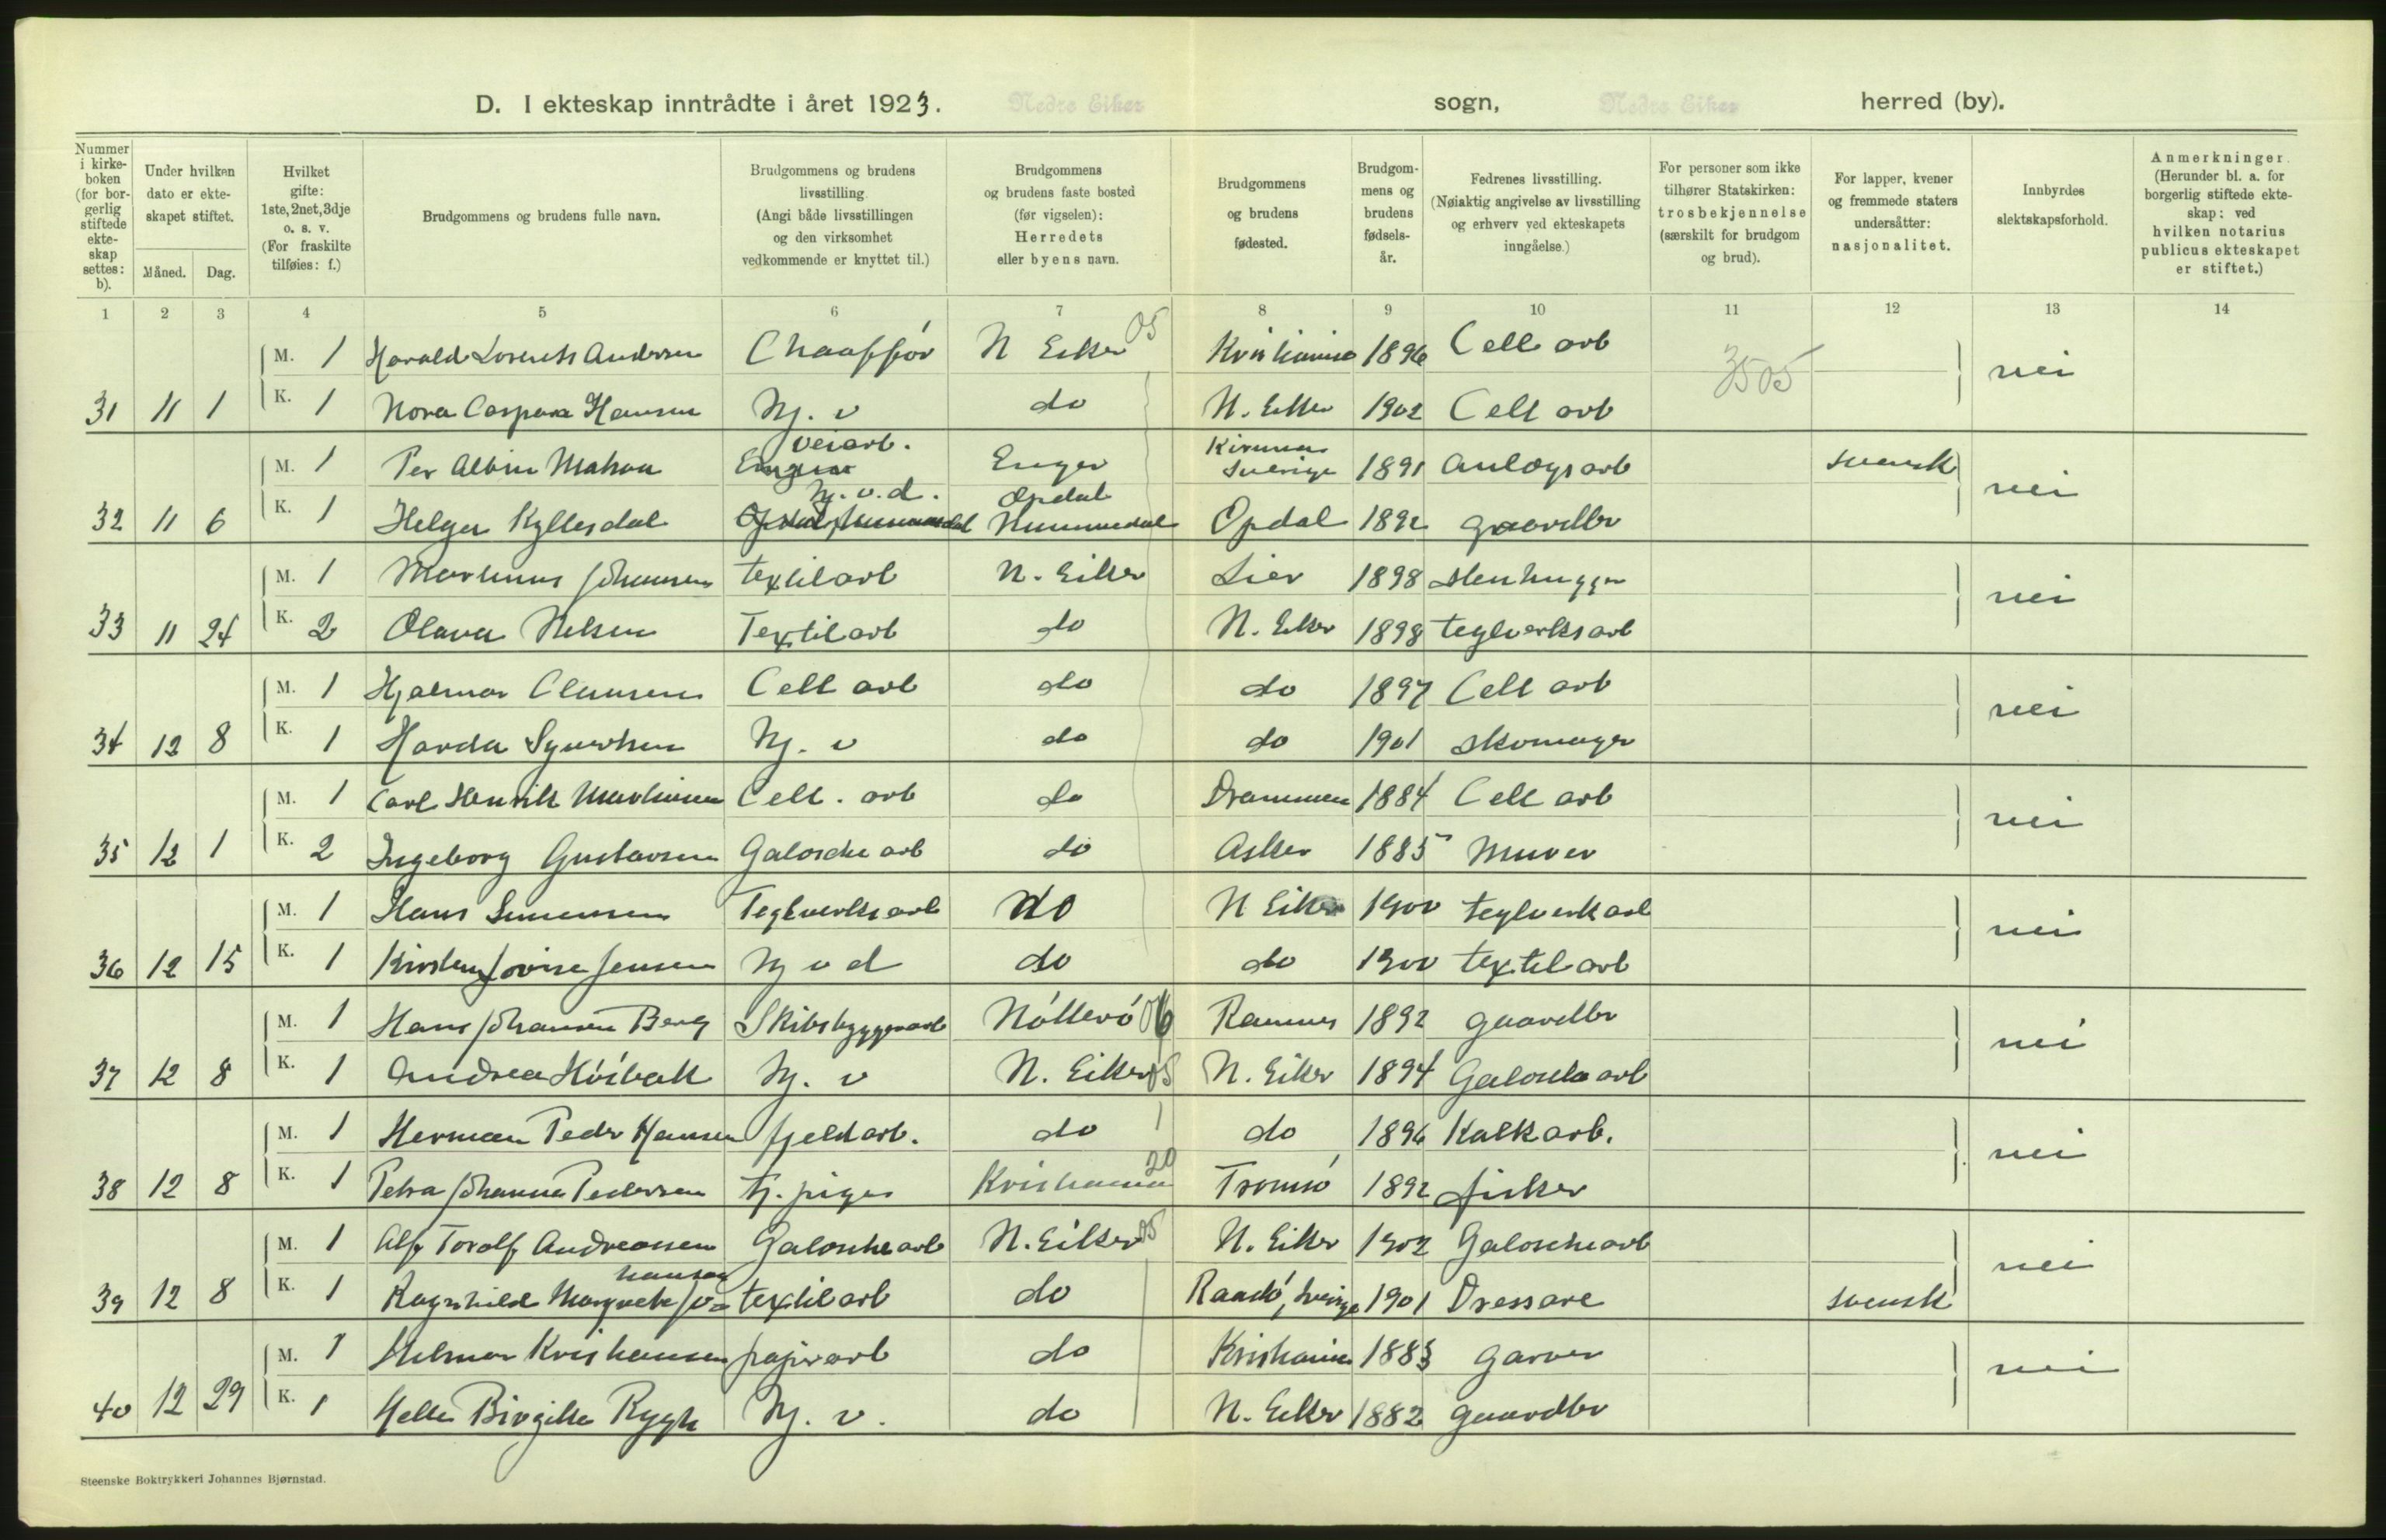 D. I ekteskap inntrådte i året 1923. Nedre Eiker sogn, Nedre Eiker herred (by).
Nummer i kirkeboken (for borgerlig stiftede ekteskap settes: b).
Under hvilken dato er ekteskapet stiftet.
Måned. Dag.
Hvilket gifte: 1ste, 2net, 3dje o. s. v. (For fraskilte tilføies: f.)
Brudgommens og brudens fulle navn.
Brudgommens og brudens livsstilling. (Angi både livsstillingen og den virksomhet vedkommende er knyttet til.)
Brudgommens og brudens faste bosted (før vigselen): Herredets eller byens navn.
Brudgommens og brudens fødested.
Brudgommens og brudens fødselsår.
Fedrenes livsstilling. (Nøiaktig angivelse av livsstilling og erhverv ved ekteskapets inngåelse.)
For personer som ikke tilhører Statskirken: trosbekjennelse (særskilt for brudgom og brud).
For lapper, kvener og fremmede staters undersåtter: nasjonalitet.
Innbyrdes slektskapsforhold.
Anmerkninger. (Herunder bl. a. for borgerlig stiftede ekteskap: ved hvilken notarius publicus ekteskapet er stiftet.)
1 2 3 4 5 6 7 8 9 10 11 12 13 14
M. 1 Harald Lorents Andersen Chaaffór N Eiker 05 Kristiania 1896 Cell arb 3505 nei
31 11 1 K. 1 Nora Caspara Hansen hj. v do N. Eiker 1902 Cell arb
M. 1 Per Albin veiarb. Enger Sverige 1891 Anlægsarb svensk nei
32 11 6 K. 1 Helga Kyllesdal hj. v. d. Opdal Nummedal Opdal 1892 gaardbr
M. 1 Marhinus Johansen textilarb N. Eiker Lier 1898 stenhugger nei
33 11 24 K. 2 Olava Nelsen Textilarb do N. Eiker 1898 teglverksarb
M. 1 Hjalmar Clausen Cell arb do do 1897 Cell arb nei
34 12 8 K. 1 Harda hj. v do do 1901 skomager
M. 1 Carl Henrik Marhinsen Cell. arb do Drammen 1884 Cell arb nei
35 12 1 K. 2 Ingeborg Gustavsen Galosche arb do Asker 1885 murer
M. 1 Hans Simensen Teglverksarb do N Eiker 1900 teglverkarb nei
36 12 15 K. 1 Kirsten Lovise Jensen hj v d do do 1900 textil arb
M. 1 Hans Johansen Berg Skibsbyggerarb Nótteró 06 Ramnes 1892 gaardbr nei
37 12 8 K. 1 Andrea Hóibak hj. v N. Eiker 05 N. Eiker 1894 Galosche arb
M. 1 Herman Peder Hansen fjeldarb. do do 1896 Kalkarb. nei
38 12 8 K. 1 Petra Johanna Pedersen tj. pige Kristiania 20 Tromsó 1892 fisker
M. 1 Alf Torolf Andreassen Galoschearb N. Eiker 05 N. Eiker 1902 Galoschearb nei
hansen
39 12 8 K. 1 Ragnhild Margrete Jo= textilarb do Sverige 1901 Dressare svensk
M. 1 Hilmar Kristiansen papirarb do Kristiania 1883 garver nei
40 12 29 K. 1 Helle Birgitte Rygh hj. v. do N. Eiker 1882 gaardbr
Steenske Boktrykkeri Johannes Bjørnstad.